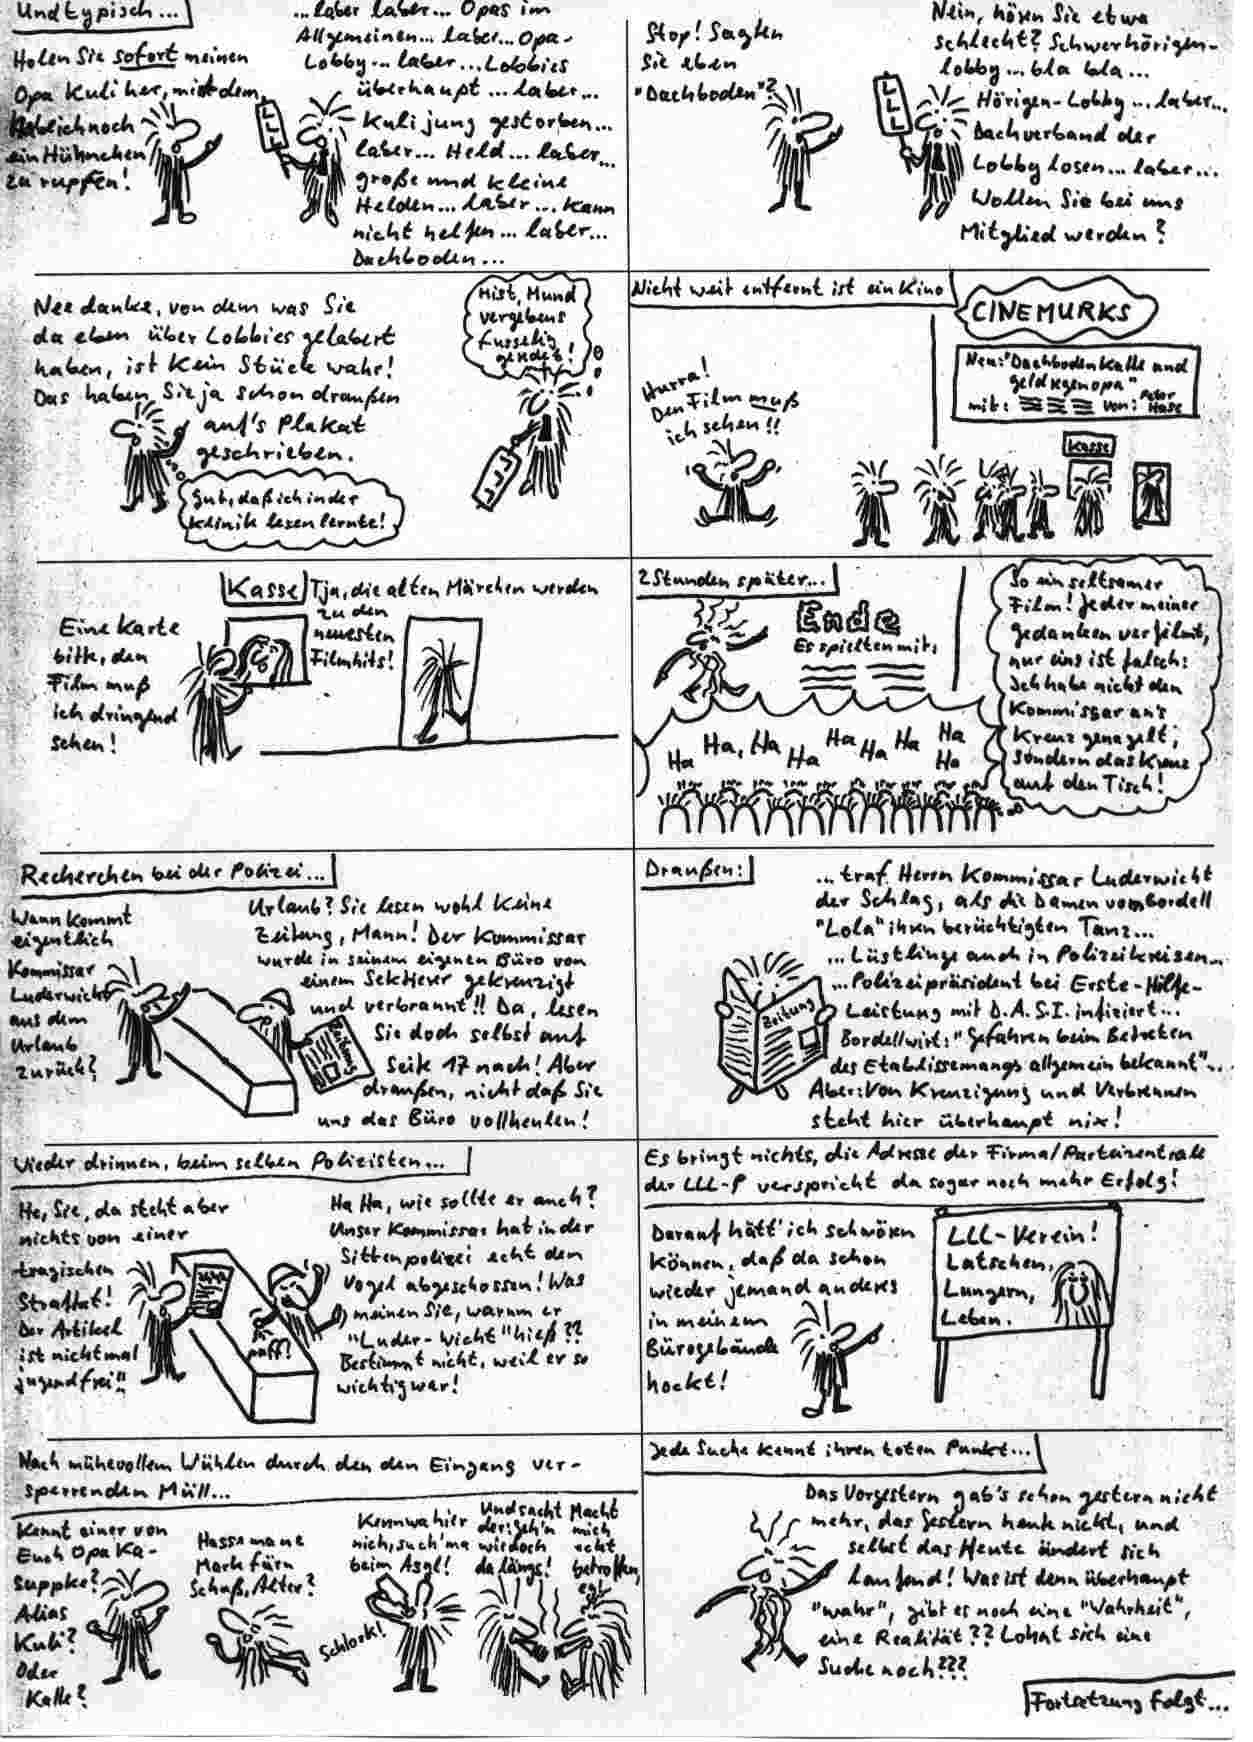 Und typisch...
Holen Sie sofort meinen
Opa Kuli her, mit dem
hab ich noch
ein Hühnchen
zu rupfen!
...laber laber... Opas im
Allgemeinen... laber... Opa-
Lobby... laber... Lobbies
überhaupt... laber...
Kuli jung gestorben...
laber... Held... laber...
große und kleine
Helden... laber... Kann
nicht helfen... laber...
Dachboden...
Stop! Sagten
Sie eben
"Dachboden"?
Nein, hören Sie etwa
schlecht? Schwerhörigen-
lobby... bla bla...
Hörigen-Lobby... laber...
Dachverband der
Lobbylosen... laber...
Wollen Sie bei uns
Mitglied werden?
Nee danke, von dem was Sie
da eben über Lobbies gelabert
haben, ist kein Stück wahr!
Das haben Sie ja schon draußen
auf's Plakat
geschrieben.
Gut, daß ich in der
Klinik lesen lernte!
Mist, Mund
vergebens
fusselig
geredet!
LLL
Nicht weit entfernt ist ein Kino
CINEMURKS
Neu: "Dachbodenkalle und
geldregenopa"
mit: von: Peter
Hase
Hurra!
Den Film muß
ich sehen!!
Kasse
Kasse
Tja, die alten Märchen werden
zu den
neuesten
Filmhits!
Eine Karte
bitte, den
Film muß
ich dringend
sehen!
2 Stunden später...
Ende
Es spielten mit:
Ha Ha, Ha Ha Ha Ha Ha Ha Ha
So ein seltsamer
Film! Jeder meiner
gedanken verfilmt,
nur eins ist falsch:
Ich habe nicht den
Kommissar an's
Kreuz genagelt,
sondern das Kreuz
auf den Tisch!
Recherchen bei der Polizei...
Wann kommt
eigentlich
Kommissar
Luderwicht
aus dem
Urlaub
zurück?
Urlaub? Sie lesen wohl keine
Zeitung, Mann! Der Kommissar
wurde in seinem eigenen Büro von
einem Sektierer gekreuzigt
und verbrannt!! Da, lesen
Sie doch selbst auf
Seite 17 nach! Aber
draußen, nicht daß Sie
uns das Büro vollheulen!
Zeitung
Draußen:
...traf Herrn Kommissar Luderwicht
der Schlag, als die Damen vom Bordell
"Lola" ihren berüchtigten Tanz...
...Lüstlinge auch in Polizeikreisen...
...Polizeipräsident bei Erste-Hilfe-
Leistung mit D.A.S.I. infiziert...
Bordellwirt: "Gefahren beim Betreten
des Etablissemangs allgemein bekannt"...
Aber: Von Kreuzigung und Verbrennen
steht hier überhaupt nix!
Zeitung
Wieder drinnen, beim selben Polizisten...
He, Sie, da steht aber
nichts von einer
tragischen
Straftat!
Der Artikel
ist nicht mal
jugendfrei!!
paff!
Ha Ha, wie sollte er auch?
Unser Kommissar hat in der
Sittenpolizei echt den
Vogel abgeschossen! Was
meinen Sie, warum er
"Luder-wicht" hieß??
Bestimmt nicht, weil er so
wichtig war!
Es bringt nichts, die Adresse der Firma/Parteizentrale
der LLL-P verspricht da sogar noch mehr Erfolg!
Darauf hätt' ich schwören
können, daß da schon
wieder jemand anderes
in meinem
Bürogebäude
hockt!
LLL-Verein!
Latschen,
Lungern,
Leben.
Nach mühevollem Wühlen durch den den Eingang ver-
sperrenden Müll...
Kennt einer von
Euch Opa Ka-
suppke?
Alias
Kuli?
Oder
Kalle?
Hassemane
Mark fürn
Schuß, Alter?
Schlock!
Kennwa hier
nich, such' ma
beim Asyl!
Und sacht
der: Geh'n
wir doch
da längs!
Macht
mich
echt
betroffen,
ey!
Jede Suche kennt ihren toten Punkt...
Das Vorgestern gab's schon gestern nicht
mehr, das Gestern heute nicht, und
selbst das Heute ändert sich
laufend! Was ist denn überhaupt
"wahr", gibt es noch eine "Wahrheit",
eine Realität?? Lohnt sich eine
Suche noch???
Fortsetzung folgt...